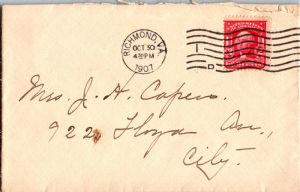 RICHMOND, VA.
OCT 30
4 30 PM
1907
1
D
Mrs. J. H. Capers.
922 Floyd Ave.,
City.